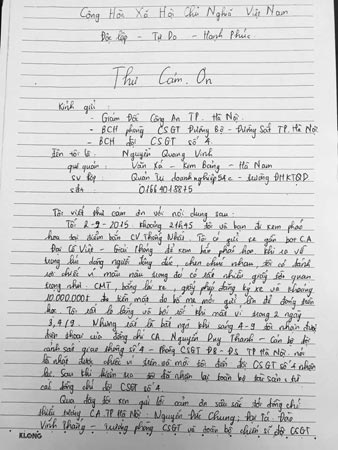 Cộng Hòa Xã Hội Chủ Nghĩa Việt Nam
Độc lập - Tự Do - Hạnh Phúc
Thư Cám Ơn
Kính gửi :
- Giám Đốc Công An TP. Hà Nội
- BCH phòng CSGT Đường Bộ - Đường Sắt TP. Hà Nội
- BCH đội CSGT số 4.
Tên tôi là : Nguyễn Quang Vinh
quê quán : Văn Xá - Kim Bảng - Hà Nam
sv lớp : Quản trị doanh nghiệp 54c - trường ĐHKTQD
sđt : 01664018875
Tôi viết thư cám ơn với nội dung sau :
Tối 2-9-2015 khoảng 21h45 tôi và bạn đi xem pháo
hoa tại điểm bắn CV Thống Nhất. Tôi có gửi xe gần
Giải Phóng để xem bắn pháo hoa. Khi ra về
trong lúc đông người
rơi chiếc ví màu nâu trong đó có rất nhiều giấy tờ quan
trọng như : CMT, bằng lái xe, giấy phép đăng ký xe và khoảng
10.000.000đ tiền mặt do bố mẹ mới gửi lên để đóng tiền
học. Tôi rất lo lắng và bối rối khi mất ví trong 2 ngày
3,4/9. Nhưng rất là bất ngờ khi sáng 4-9 tôi nhận được
điện thoại của đồng chí CA. Nguyễn Duy Thanh - Cán bộ đội
cảnh sát giao thông số 4 - Phòng CSGT ĐB - ĐS TP Hà Nội. nói
là nhặt được chiếc ví trên và mời tôi đến đội CSGT số 4 nhận
lại. Sau khi kiểm tra tôi đã nhận lại toàn bộ tài sản từ
các đồng chí đội CSGT số 4.
Qua đây tôi xin gửi lời cám ơn sâu sắc tới đồng chí
thiếu tướng CA.TP Hà Nội - Nguyễn Đức Chung; Đại Tá - Đào
Vịnh Thắng - trưởng phòng CSGT và toàn bộ chiến sĩ đội CSGT
KLONG